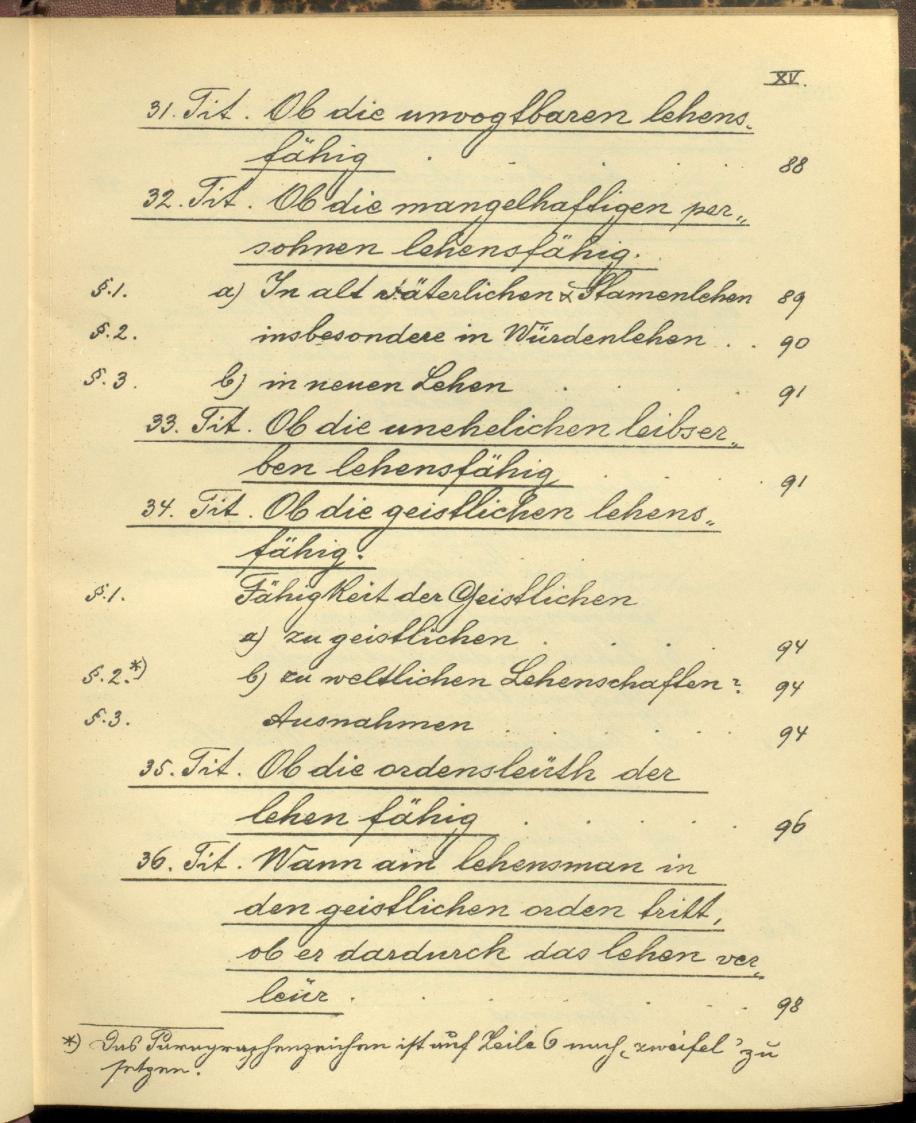 XV
31. Tit. Ob die unvogtbaren lehens„
fähig . . . . . 88
32. Tit. Ob die mangelhaftigen per„
sohnen lehensfähig.
§.1. a) In alt väterlichen & Stamenlehen 89
§.2. insbesondere in Würdenlehen . . 90
§.3. b) in neuen Lehen . . . . 91
33. Tit. Ob die unehelichen leibser„
ben lehensfähig . . . . 91
34. Tit. Ob die geistlichen lehens„
fähig.
§.1. Fähigkeit der Geistlichen
a) zu geistlichen . . . . 94
§.2.*) b) zu weltlichen Lehenschaften? 94
§.3. Ausnahmen . . . . . 94
35. Tit. Ob die ordensleüth der
lehen fähig . . . . 96
36. Tit. Wann ain lehensman in
den geistlichen orden tritt,
ob er dardurch das lehen ver„
leür . . . . . 98
*) Das Paragraphenzeichen ist auf Zeile 6 nach „zweifel" zu
setzen.